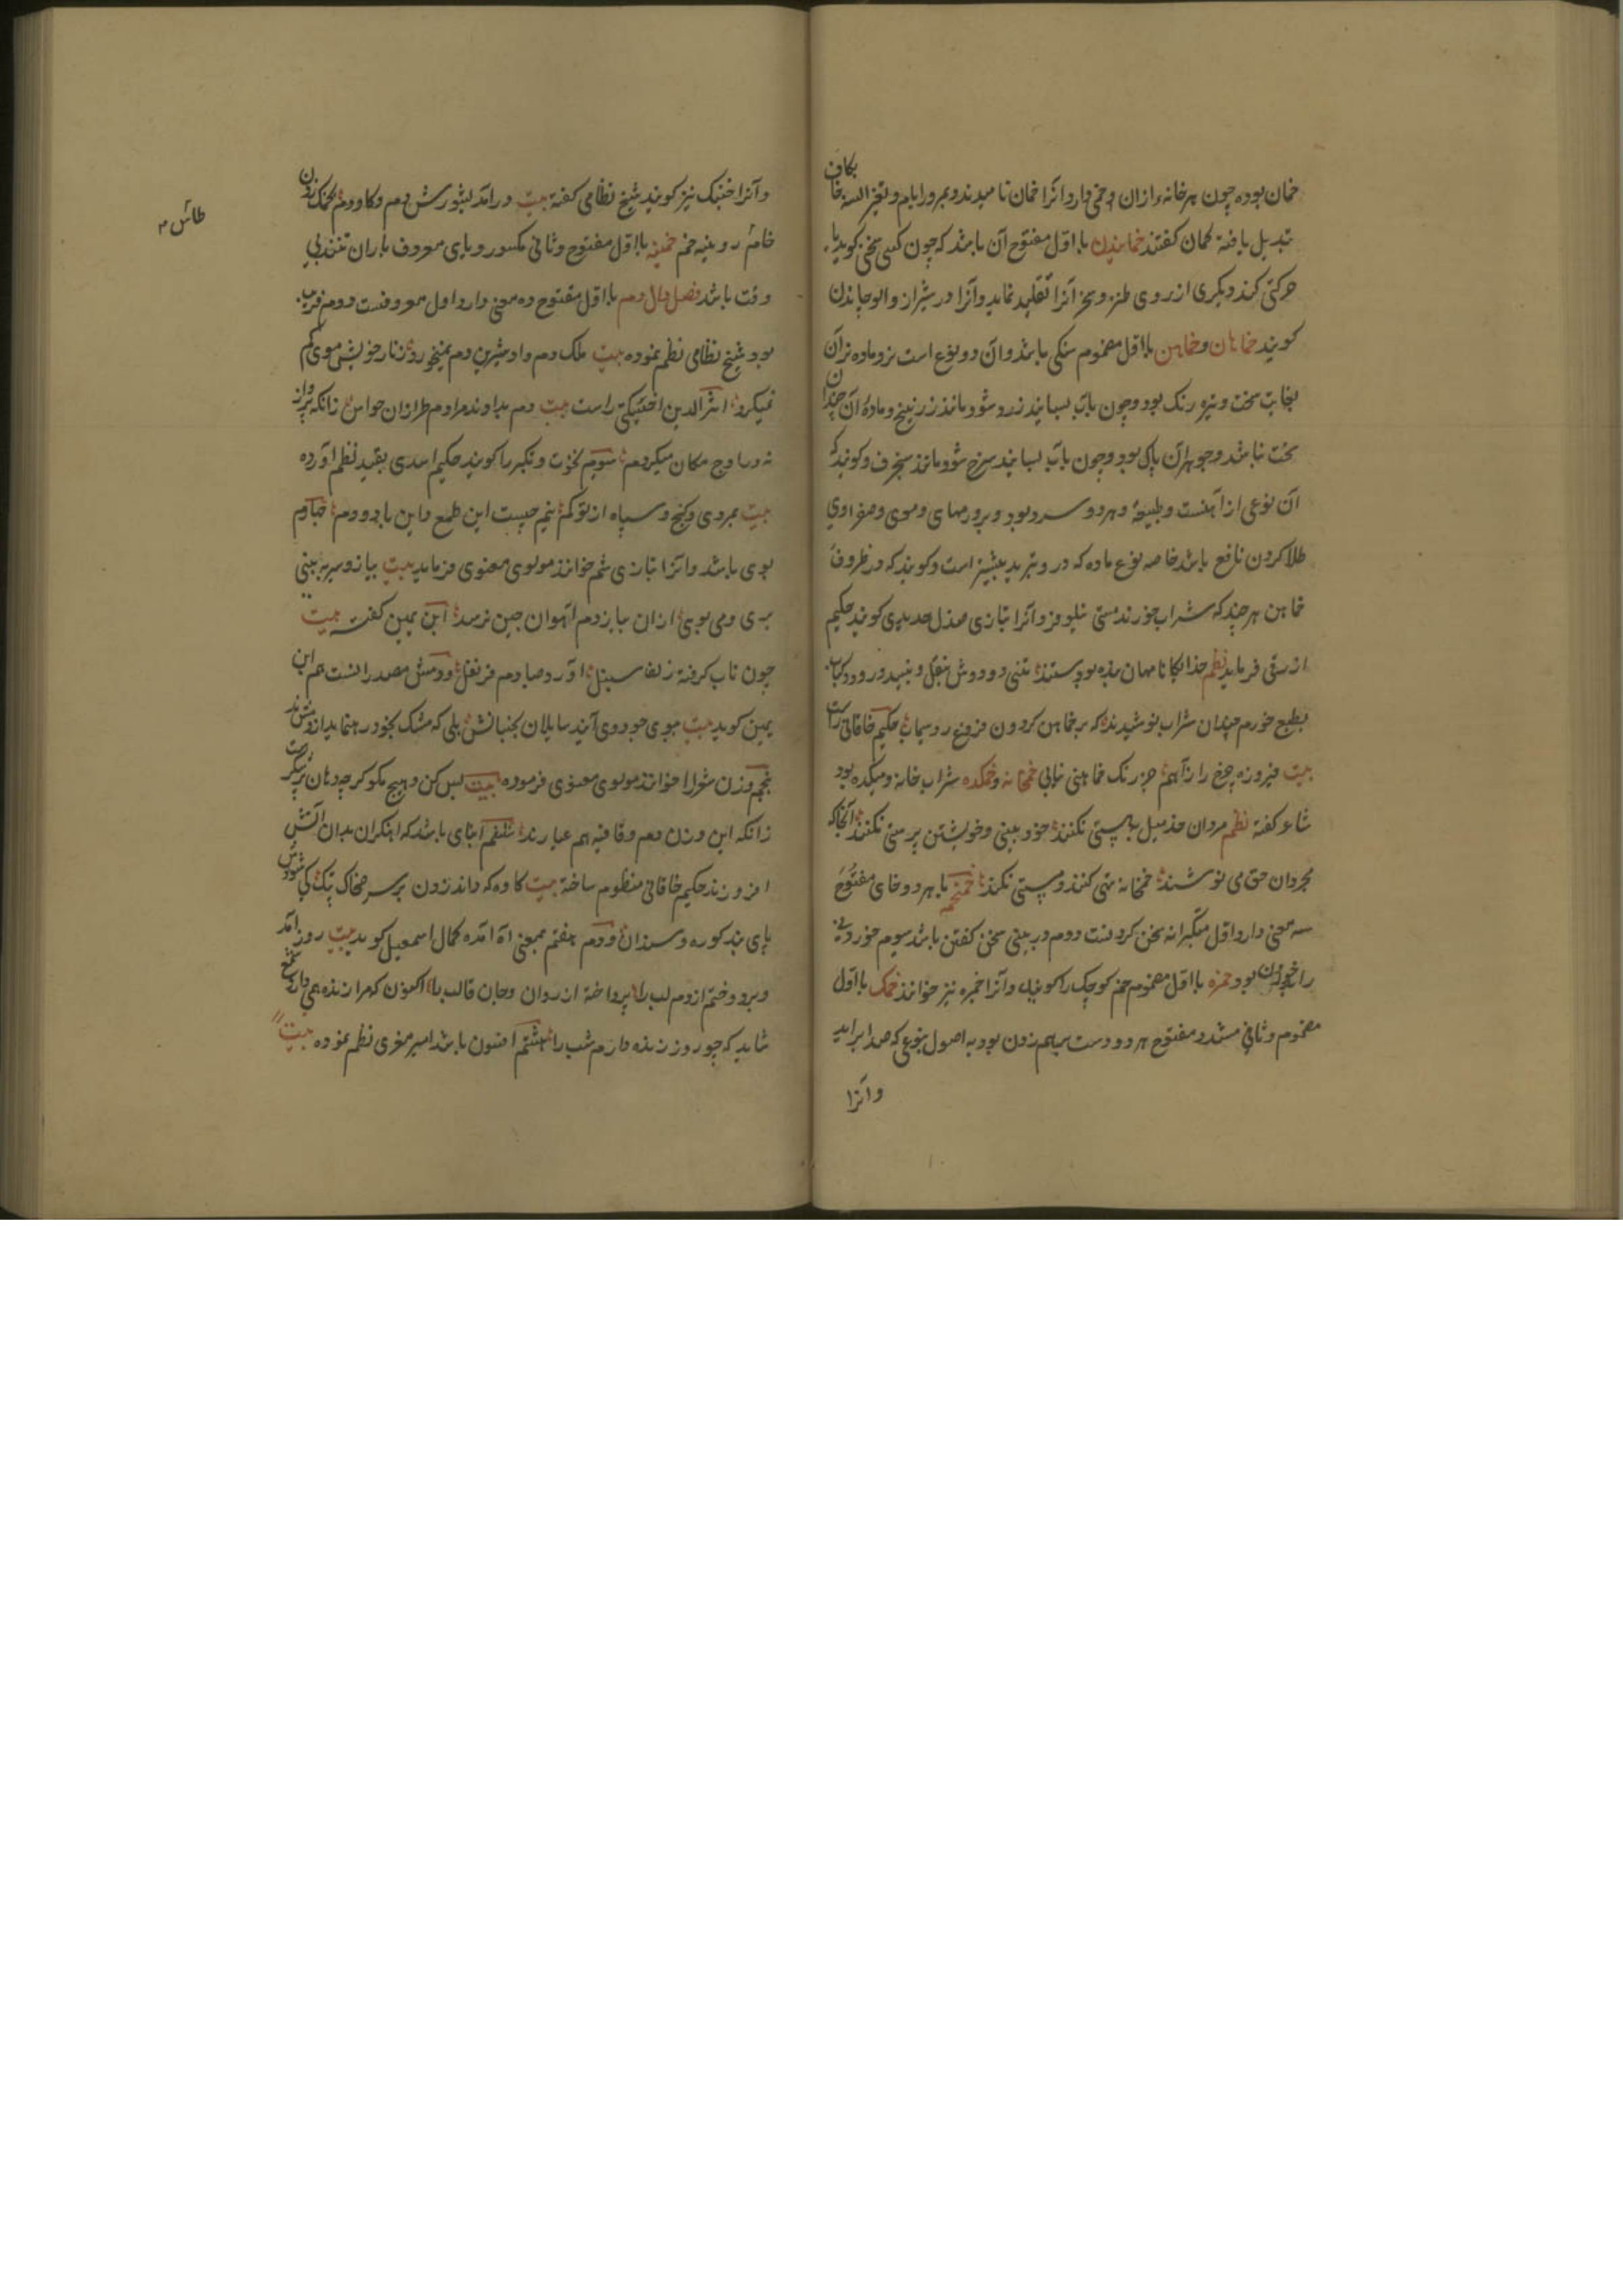 خمان بوده چون هر خانه ازان و خمی دارد آنرا خمان نامیدند و بمرور ایام و تغیر السنه خا بکاف
تبدیل یافته کمان کفتند خمانیدن با اول مفتوح آن باشد که چون کسی سخنی کوید یا
حرکتی کند دیکری از روی طنز و سخر آنرا تقلید نماید و آنرا در شیراز والوچاندن
کویند خماهان و خماهن با اول مضموم سنکی باشد و آن دو نوع است نر و ماده نر آن
بغایت سخت و تیره رنک بود و چون بآب بسایند زرد شود مانند زرنیخ و مادهٔ آن چندان
سخت نباشد و جوهر آن پاکی بود و چون بآب بسایند سرخ شود مانند شنجرف و کویند که
آن نوعی از آهنست و طبیعة هر دو سرد بود و بر ورمهای دموی و صفراوی
طلا کردن نافع باشد خاصه نوع ماده که درو تبرید بیشتر است و کویند که در ظروف
خماهن هر چند که شراب خورند مستی نیاورد و آنرا بتازی صندل حدیدی کویند حکیم
ازرقی فرماید نظم خدایکانا مهمان بنده بودستند تنی دو دوش بنقل و نبید و رود و کباب
بطبع خورم چندان شراب نوشیدند که بر خماهن کردون فروغ زد سیماب حکیم خاقانی راست
بیت فیروزه چرخ را ز آهم جز رنک خماهنی نیابی خمخانه و خمکده شراب خانه و میکده بود
شاعر کفته نظم مردان خدا میل به پستی نکنند خود بینی و خویشتن پرستی نکنند آنجا که
مجردان حق می نوشند خمخانه تهی کنند و مستی نکنند خمخم با هر دو خای مفتوح
سه معنی دارد اول متکبرانه سخن کردنست دوم در بینی سخن کفتن باشد سوم خوردنی
را خوردن بود خمره با اول مضموم خم کوچک را کویند و آنرا خمبره نیز خوانند خمک با اول
مضموم و ثانی مشدد مفتوح هر دو دست بر هم زدن بود به اصول بنوعی که صدا برآید
وآنرا
وآنرا خنبک نیز کویند شیخ نظامی کفته بیت درآمد بشورش دم کاودم بخمک زدن
خام روینه خم خمینه با اول مفتوح و ثانی مکسور و یای معروف باران تند بی
وقت باشد فصل دال دم با اول مفتوح ده معنی دارد اول معروفست دوم فریب
بود شیخ نظامی نظم نموده بیت ملک دم داد و شیرین دم نمیخورد ز نار خویش موی کم
نمیکرد اثیر الدین اخسیکتی راست بیت دم مداوند مرا دم طرازان حواس زانکه پرواز
نه در اوج مکان میکردم سوم نخوت و تکبر را کویند حکیم اسدی بقید نظم آورده
بیت بمردی و کنج و سپاه از تو کم نیم چیست این طمع و این باد و دم چهارم
بوی باشد و آنرا بتازی شم خوانند مولوی معنوی فرماید بیت بیا زوسر به بینی
بری و می بوی ازان بیابر دم آهوان چین نرسد ابن یمین کفته بیت
چون تاب کرفته زلف سنبل آورد صبا دم قرنفل و دمش مصدر انست هم ابن
یمین کوید بیت
پنجم وزن شعر را خوانند مولوی معنوی فرموده بیت بس کن و هیچ مکو کرچه دهان پر شکر است
زانکه این وزن دم و قافیه هم عیارند ششم آبنای باشد که آهنکران بدان آتش
افروزند حکیم خاقانی منظوم ساخته بیت کاوه که داند زدن بر سر ضحاک پتک کی شودش
پای بند کوره و سندان و دم هفتم بمعنی آه آمده کمال اسمعیل کوید بیت روز آمد
و بر دوختم از دم لب را پرداخته از روان و جان قالب را اکنون که مرا زنده همی دارد شمع
شاید که چو روز زنده دارم شب را هشتم افسون باشد امیر معزی نظم نموده بیت
طاس م